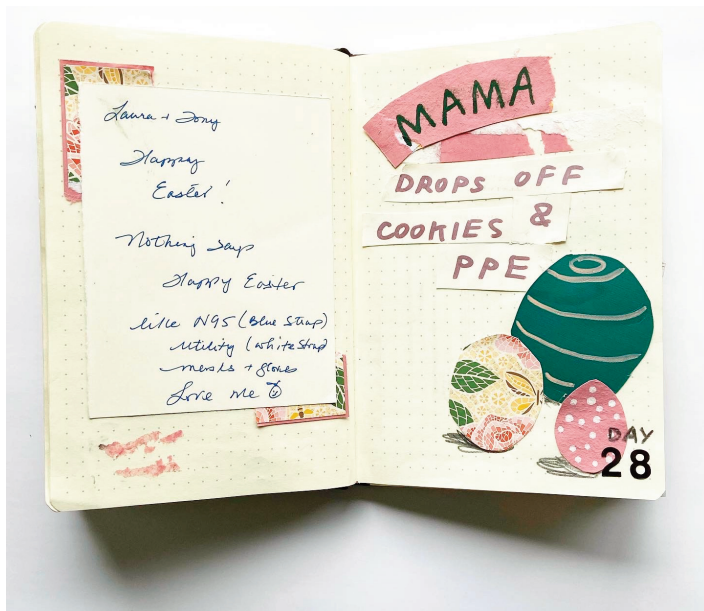 Laura + Tony
Happy
Easter!
Nothing Says
Happy Easter
like N95 (Blue Strap)
Utility (white Strap)
masks + gloves
Love me
MAMA
DROPS OFF
COOKIES &
PPE
DAY
28